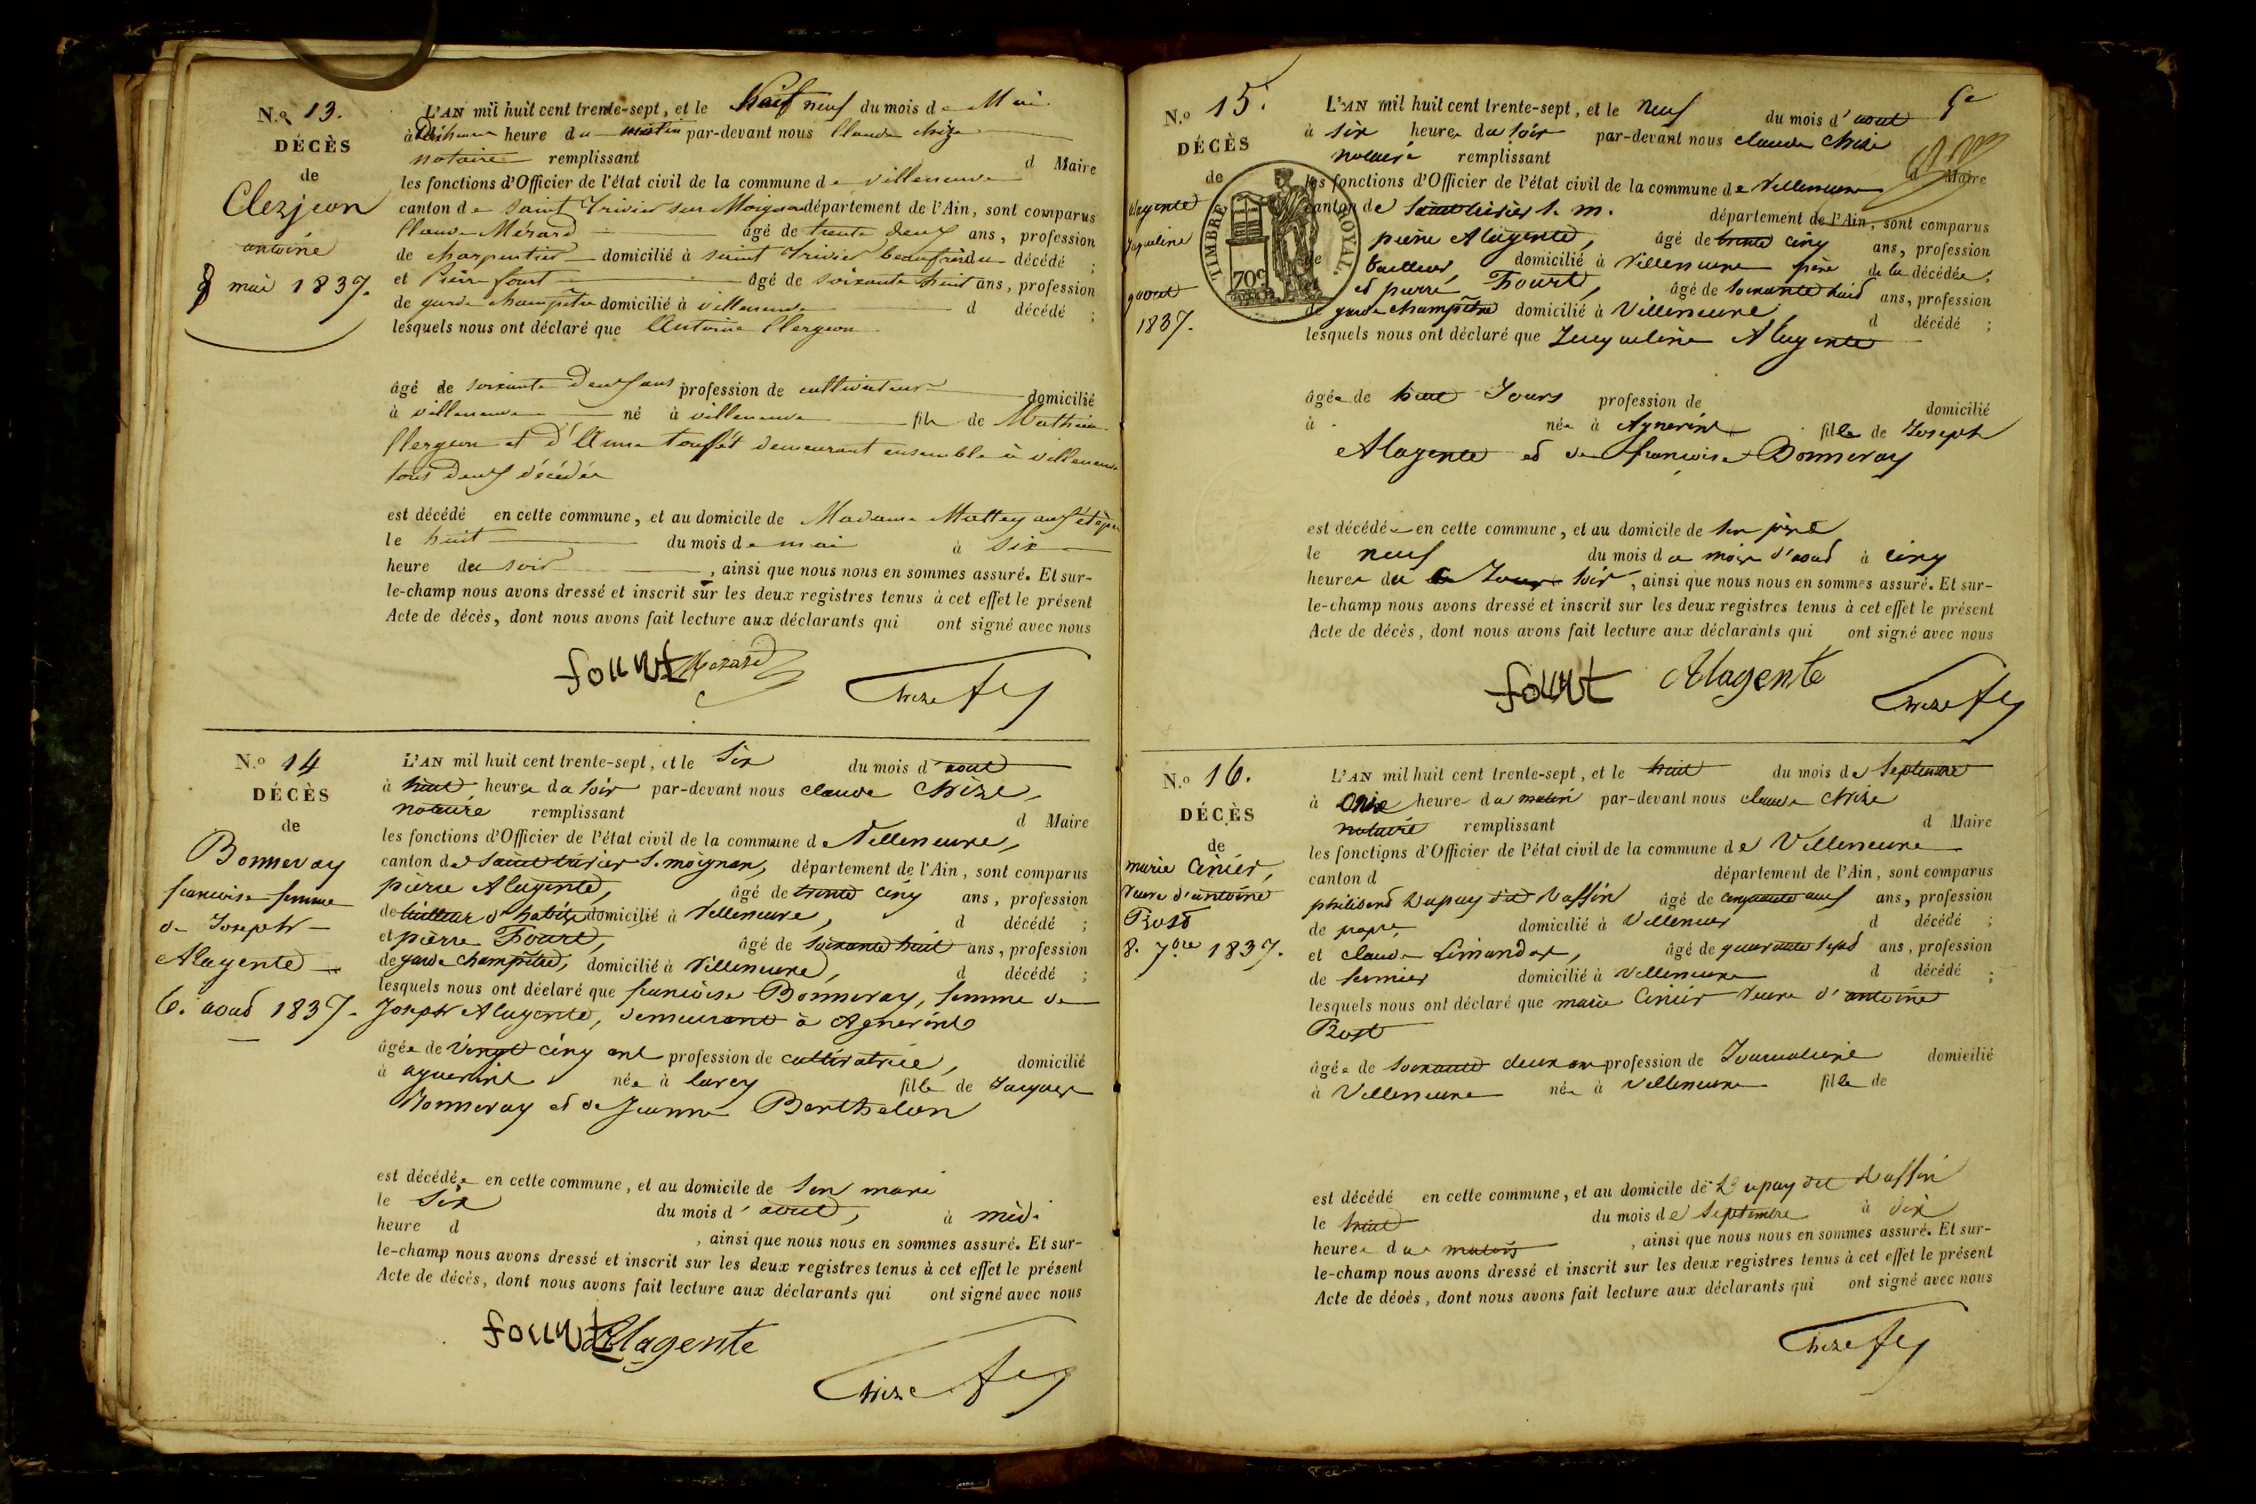 N.o 13.
DÉCÈS
de
Clerjeon
antoine
8 mai 1837.
L'AN mil huit cent trente-sept, et le neuf du mois de Mai
à heure du matin par-devant nous Claude Chize
notaire remplissant d Maire
les fonctions d'Officier de l'état civil de la commune de villeneuve
canton de Saint Trivier sur Moignan département de l'Ain, sont comparus
Claude Mérard âgé de trente deux ans, profession
de charpentier domicilié à saint Trivier beaufrère du décédé ;
et Pierre fourt âgé de soixante huit ans, profession
de garde champêtre domicilié à villeneuve d décédé ;
lesquels nous ont déclaré que Antoine Clergeon
âgé de soixante Deux ans profession de cultivateur domicilié
à villeneuve né à villeneuve fils de Mathieu
Clergeon et d'Anne demeurant ensemble à villeneuve
tous deux décédés
est décédé en cette commune, et au domicile de Madame
le huit du mois de mai à six
heure du soir , ainsi que nous nous en sommes assuré. Et sur-
le-champ nous avons dressé et inscrit sur les deux registres tenus à cet effet le présent
Acte de décès, dont nous avons fait lecture aux déclarants qui ont signé avec nous
fourt Merard Chize
N.o 14
DÉCÈS
de
Bonneray
francoise femme
de Joseph
Alagente
6. aout 1837.
L'AN mil huit cent trente-sept, et le Six du mois d'aout
à huit heures du soir par-devant nous claude Chize,
notaire remplissant d Maire
les fonctions d'Officier de l'état civil de la commune de Villeneuve,
canton de Saint trivier S. moignan, département de l'Ain, sont comparus
pierre Alagente, âgé de trente cinq ans, profession
de tailleur d'habits domicilié à Villeneuve, d décédé ;
et pierre Fourt, âgé de soixante huit ans, profession
de garde champêtre, domicilié à Villeneuve, d décédé ;
lesquels nous ont déclaré que francoise Bonneray, femme de
Joseph Alagente, demeurant à Agnerins
âgée de vingt cinq ans profession de cultivatrice, domicilié
à agnerins née à lurcy fille de Jacques
Bonneray et de Jeanne Berthelon
est décédée en cette commune, et au domicile de son mari
le Six du mois d'aout, à midi
heure d , ainsi que nous nous en sommes assuré. Et sur-
le-champ nous avons dressé et inscrit sur les deux registres tenus à cet effet le présent
Acte de décès, dont nous avons fait lecture aux déclarants qui ont signé avec nous
fourt Alagente
Chize
N.o 15.
DÉCÈS
de
alagente
Jaqueline
9 aout
1837.
TIMBRE ROYAL.
70c
L'AN mil huit cent trente-sept, et le Neuf du mois d'aout
à six heures du soir par-devant nous claude Chize
notaire remplissant d Maire
les fonctions d'Officier de l'état civil de la commune de Villeneuve
canton de Saint trivier S. m. département de l'Ain, sont comparus
pierre Alagente, âgé de trente cinq ans, profession
de tailleur, domicilié à Villeneuve père de la décédée ;
et pierre Fourt, âgé de soixante huit ans, profession
de garde champêtre domicilié à Villeneuve d décédé ;
lesquels nous ont déclaré que Jacqueline Alagente
âgée de huit Jours profession de domicilié
à née à Agnerins fille de Joseph
Alagente et de francoise Bonneray
est décédée en cette commune, et au domicile de son père
le neuf du mois du mois d'aout à cinq
heures du soir, ainsi que nous nous en sommes assuré. Et sur-
le-champ nous avons dressé et inscrit sur les deux registres tenus à cet effet le présent
Acte de décès, dont nous avons fait lecture aux déclarants qui ont signé avec nous
fourt Alagente
Chize
N.o 16.
DÉCÈS
de
marie Cinier,
Veuve d'antoine
Rost
8. 7bre 1837.
L'AN mil huit cent trente-sept, et le huit du mois de Septembre
à Onze heure du matin par-devant nous claude Chize
notaire remplissant d Maire
les fonctions d'Officier de l'état civil de la commune de Villeneuve
canton d département de l'Ain, sont comparus
philibert Dupuy dit Vassin âgé de cinquante ans, profession
de domicilié à Villeneuve d décédé ;
et claude Limandas, âgé de quarante sept ans, profession
de fermier domicilié à Villeneuve d décédé ;
lesquels nous ont déclaré que marie Cinier Veuve d'antoine
Rost
âgée de soixante deux ans profession de Journalière domicilié
à Villeneuve née à Villeneuve fille de
est décédé en cette commune, et au domicile de Dupuy dit Vassin
le huit du mois de Septembre à dix
heures du matin , ainsi que nous nous en sommes assuré. Et sur-
le-champ nous avons dressé et inscrit sur les deux registres tenus à cet effet le présent
Acte de décès, dont nous avons fait lecture aux déclarants qui ont signé avec nous
Chize